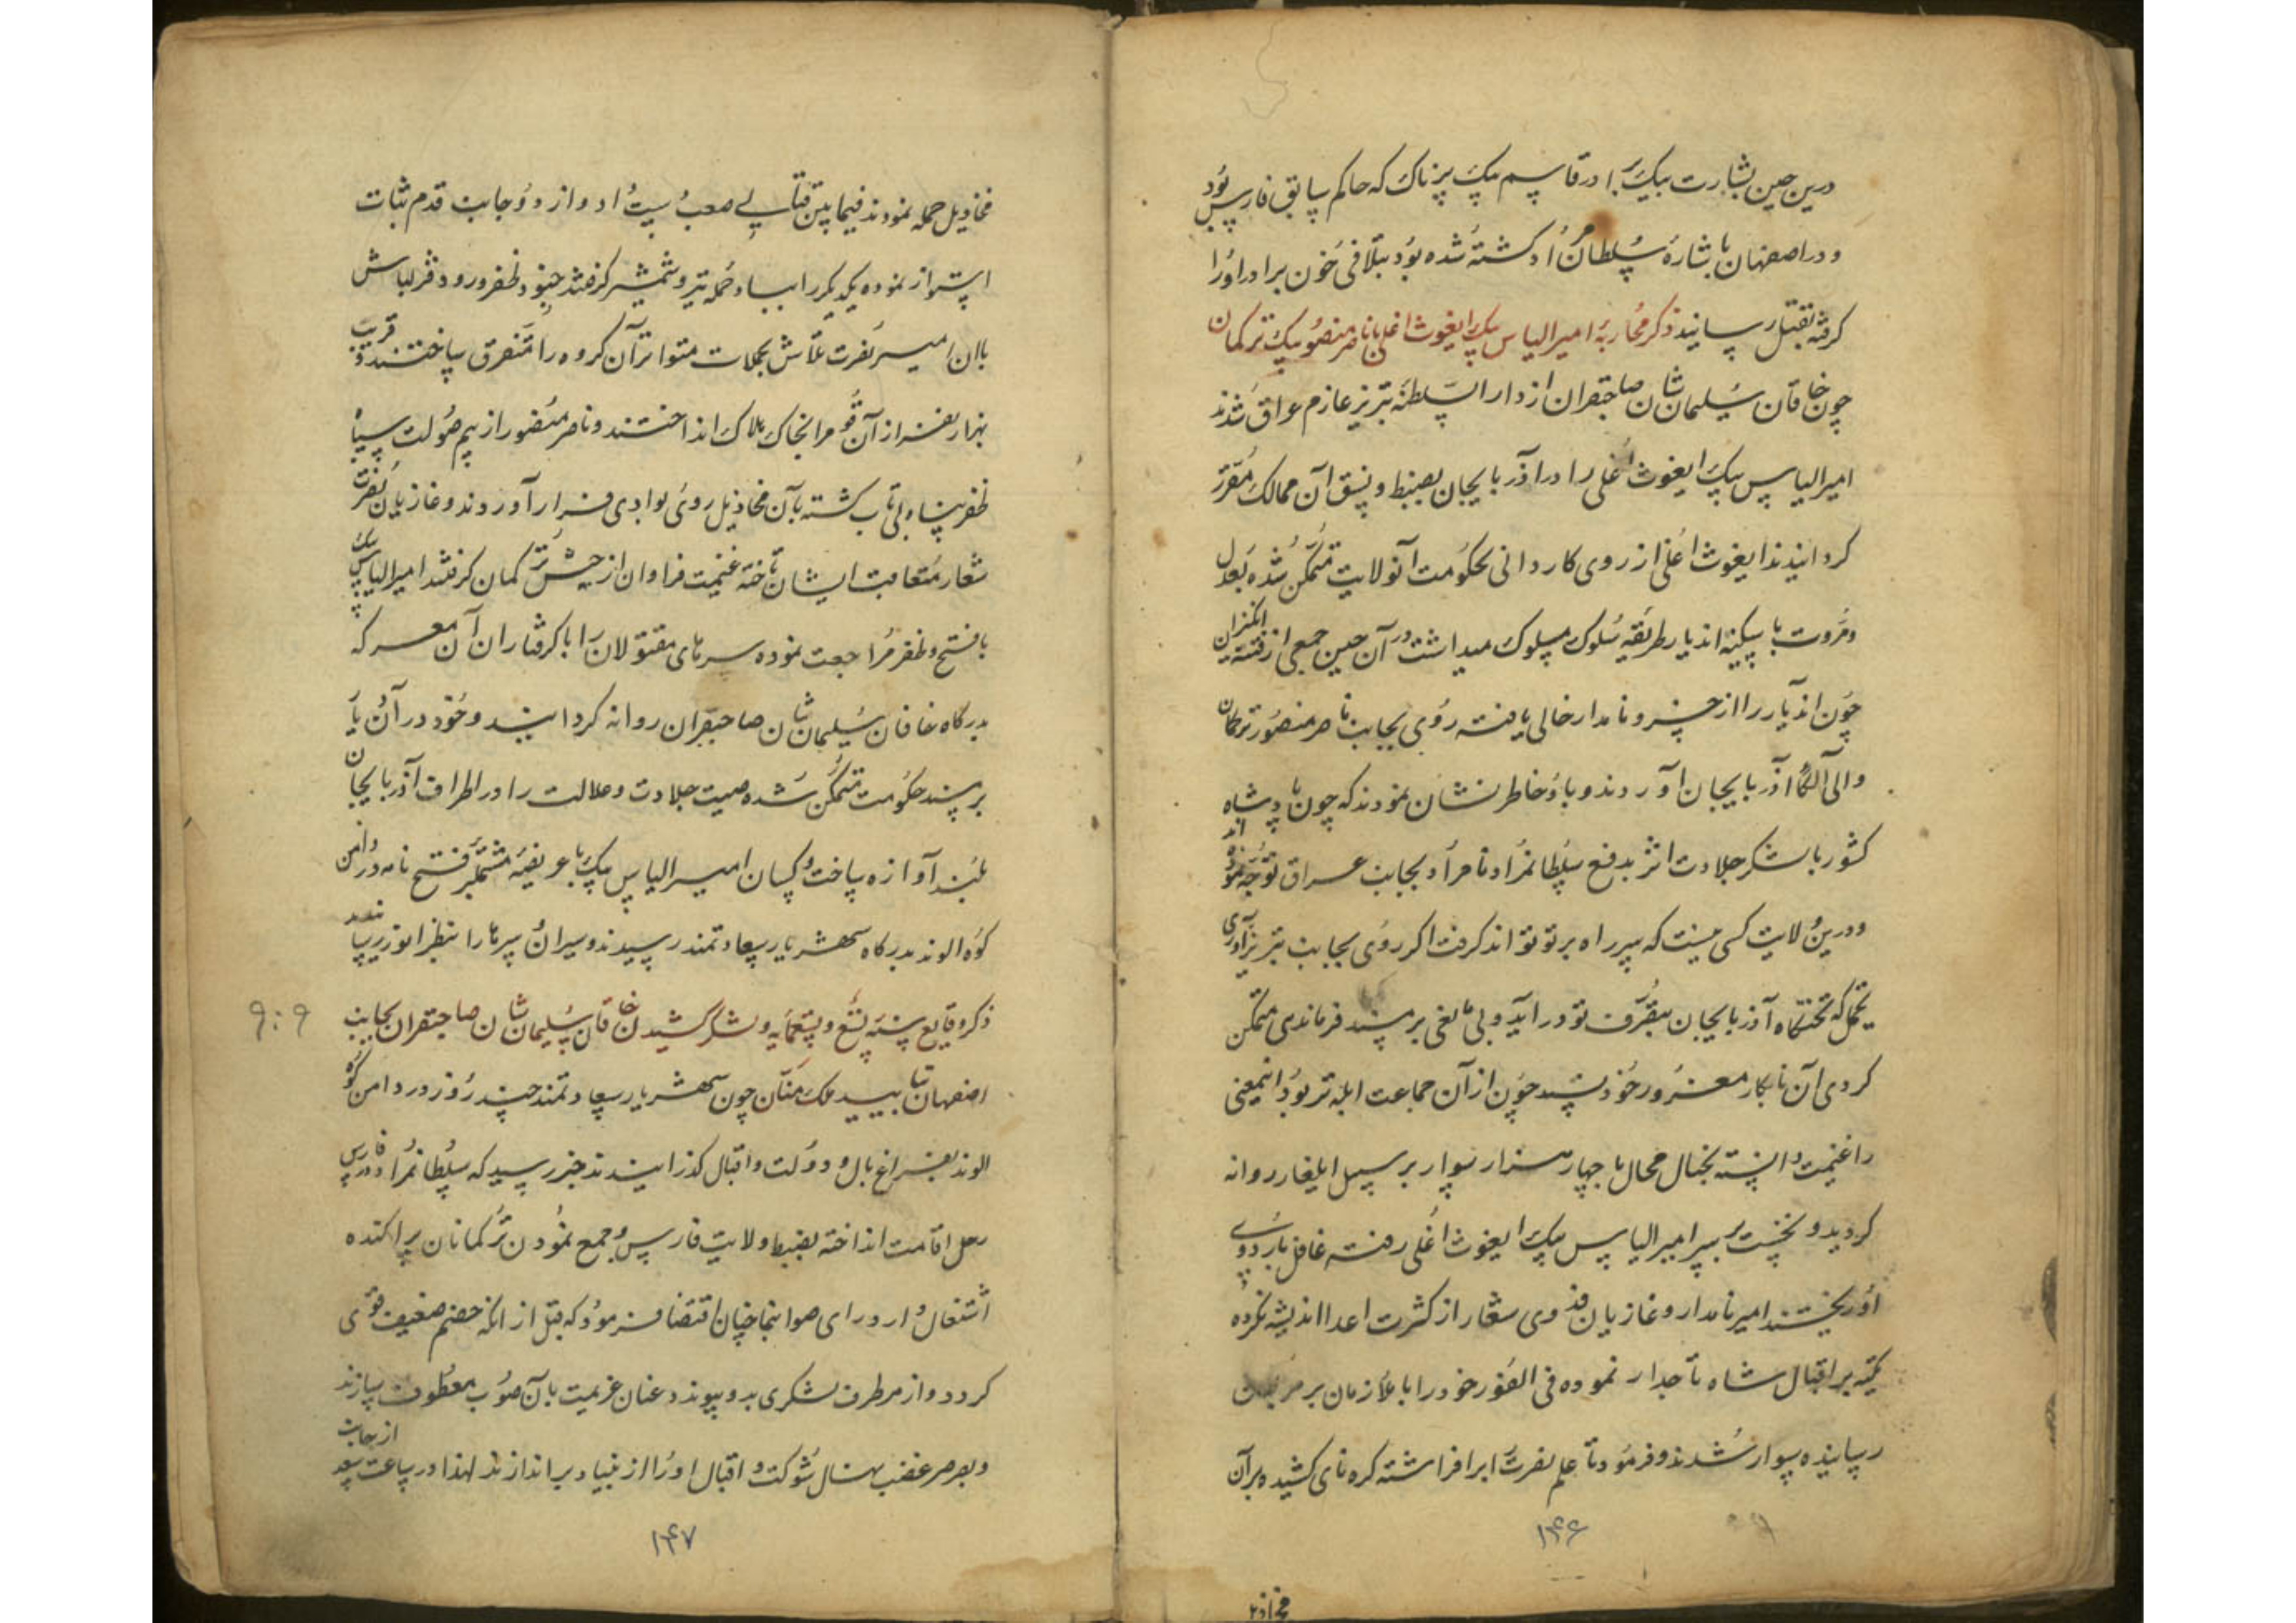 درین حین بشارت بیک برادر قاسم بیک پرناک که حاکم سابق فارس بود
و در اصفهان باشارهٔ سلطان مراد کشته شده بود بتلافی خون برادر او را
گرفته بقتل رسانید ذکر محاربهٔ امیر الیاس بیک ایغوث اغلی با ناصر منصور بیک ترکمان
چون خاقان سلیمان شان صاحبقران از دار السلطنهٔ تبریز عازم عراق شدند
امیر الیاس بیک ایغوث اغلی را در آذربایجان بضبط و نسق آن ممالک مقرر
کردانیدند ایغوث اغلی از روی کاردانی بحکومت آنولایت متمکن شده بعدل
و مروت با سکنهٔ اندیار طریقهٔ سلوک مسلوک میداشت در آن حین جمعی از فتنه انگیزان
چون اندیار را از خسرو نامدار خالی یافته روی بجانب ناصر منصور ترکمان
والی آلکاء آذربایجان آوردند و باو خاطر نشان نمودند که چون پادشاه
کشور با لشکر جلادت اثر بدفع سلطانمراد نامراد بجانب عراق توجه نموده اند
و درین ولایت کسی نیست که سر راه بر تو تواند کرفت اکر روی بجانب تبریز آوری
یحتمل که تختکاه آذربایجان بتصرف تو در آید و بی مانعی بر مسند فرماندهی متمکن
کردی آن نابکار مغرور خود پسند چون از آن جماعت ابله تر بود اینمعنی
را غنیمت دانسته بخیال محال با چهار هزار سوار بر سبیل ایلغار روانه
کردید و نخست بر سر امیر الیاس بیک ایغوث اغلی رفته غافل باردوی
او ریختند امیر نامدار و غازیان فدوی شعار از کثرت اعدا اندیشه نکرده
تکیه بر اقبال شاه تاجدار نموده فی الفور خود را با ملازمان بر مرکبان
رسانیده سوار شدند و فرمود تا علم نصرت را برافراشته کره نای کشیده بر آن
۱۴۶
مخاذیل حمله نمودند فیما بین قتالی صعب دست داد و از دو جانب قدم ثبات
استوار نموده یکدیکر را بباد حمله تیر و شمشیر کرفتند جنود ظفر ورود قزلباش
باان امیر نصرت تلاش بحملات متواتر آن کروه را متفرق ساختند و قریب
بهزار نفر از آن قوم را بخاک هلاک انداختند و ناصر منصور از بیم صولت سپاه
ظفر پناه بی تاب کشته بآن مخاذیل روی بوادی فرار آوردند و غازیان نصرت
شعار متعاقب ایشان تاخته غنیمت فراوان از جیش ترکمان کرفتند امیر الیاس بیک
با فتح و ظفر مراجعت نموده سرهای مقتولان را با کرفتاران آن معرکه
بدرکاه خاقان سلیمان شان صاحبقران روانه کردانید و خود در آن دیار
بر مسند حکومت متمکن شده صیت جلادت و عدالت را در اطراف آذربایجان
بلند آوازه ساخت و کسان امیر الیاس بیک با عریضهٔ مشتمل بر فتح نامه در دامن
کوه الوند بدرکاه شهریار سعادتمند رسیدند و سیران سرها را بنظر انور رسانیدند
ذکر وقایع سنه تسع و تسعمایه و لشکر کشیدن خاقان سلیمان شان صاحبقران بجانب
۹۰۹
اصفهان بتایید ملک منان چون شهریار سعادتمند چند روز در دامن کوه
الوند بفراغ بال و دولت و اقبال کذرانیدند خبر رسید که سلطانمراد در فارس
رحل اقامت انداخته بضبط ولایت فارس و جمع نمودن ترکمانان پراکنده
اشتغال دارد رای صوابنما چنان اقتضا فرمود که قبل از انکه خصم ضعیف قوی
کردد و از هر طرف لشکری بدو پیوندد عنان عزیمت بآن صوب معطوف سازند
و بصرصر غضب نهال شوکت و اقبال او را از بنیاد براندازند لهذا در ساعت سعد از جانب
۱۴۷